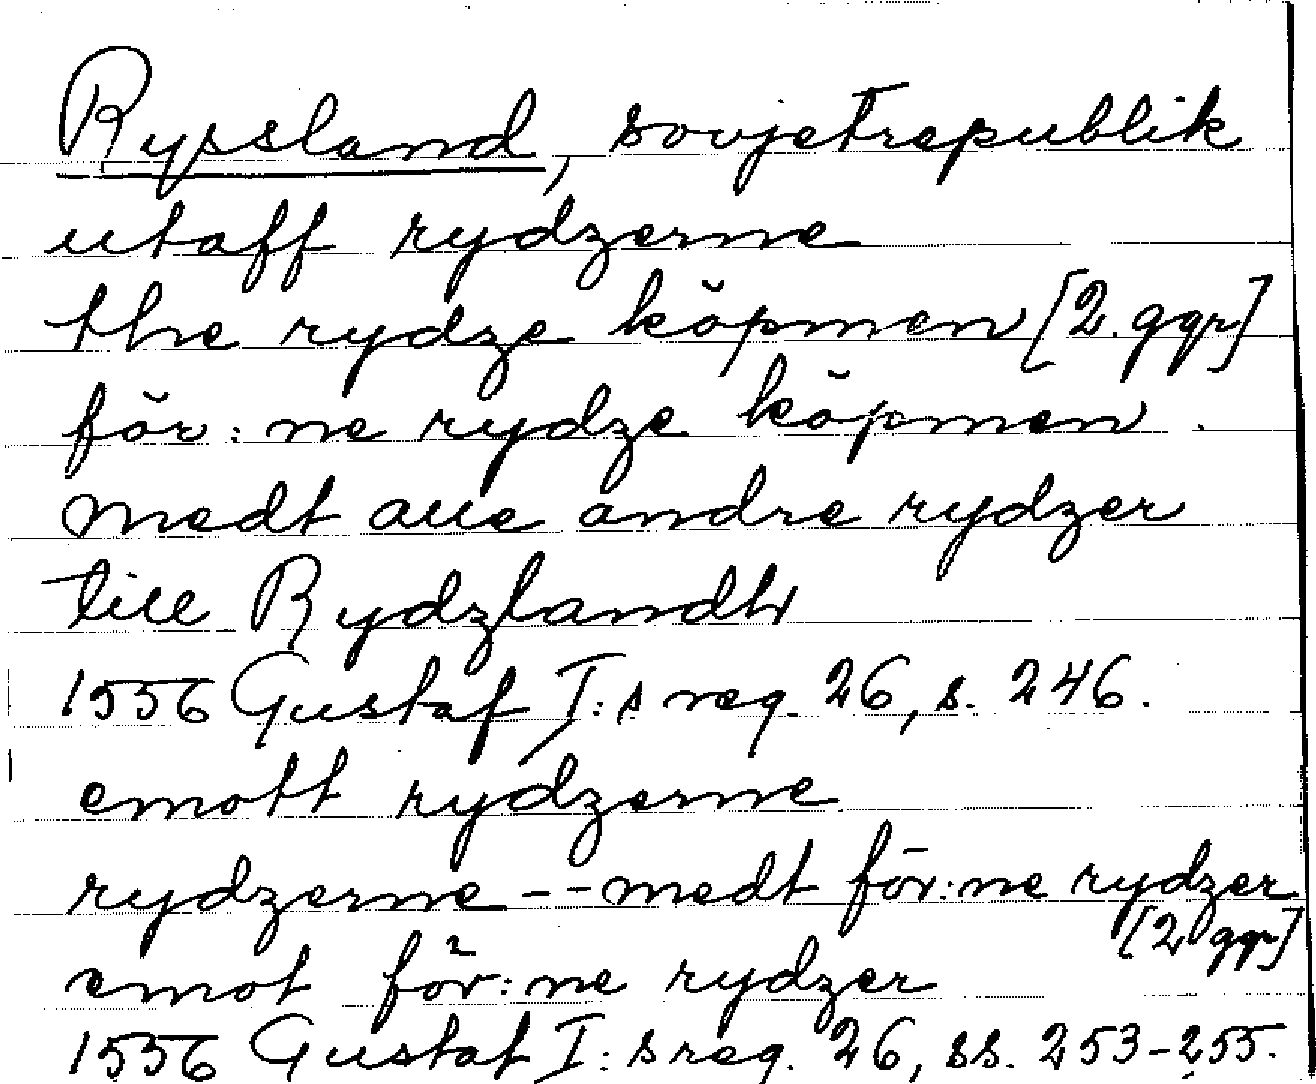 Ryssland, sovjetrepublik
utaff rydzerne
the rydze köpmen [2 ggr]
för:ne rydze köpmen
medt alle andre rydzer
till Rydzlandh
1556 Gustaf I:s reg. 26, s. 246.
emott rydzerne
rydzerne -- medt för:ne rydzer
[2 ggr]
emot för:ne rydzer
1556 Gustaf I:s reg. 26, ss. 253-255.